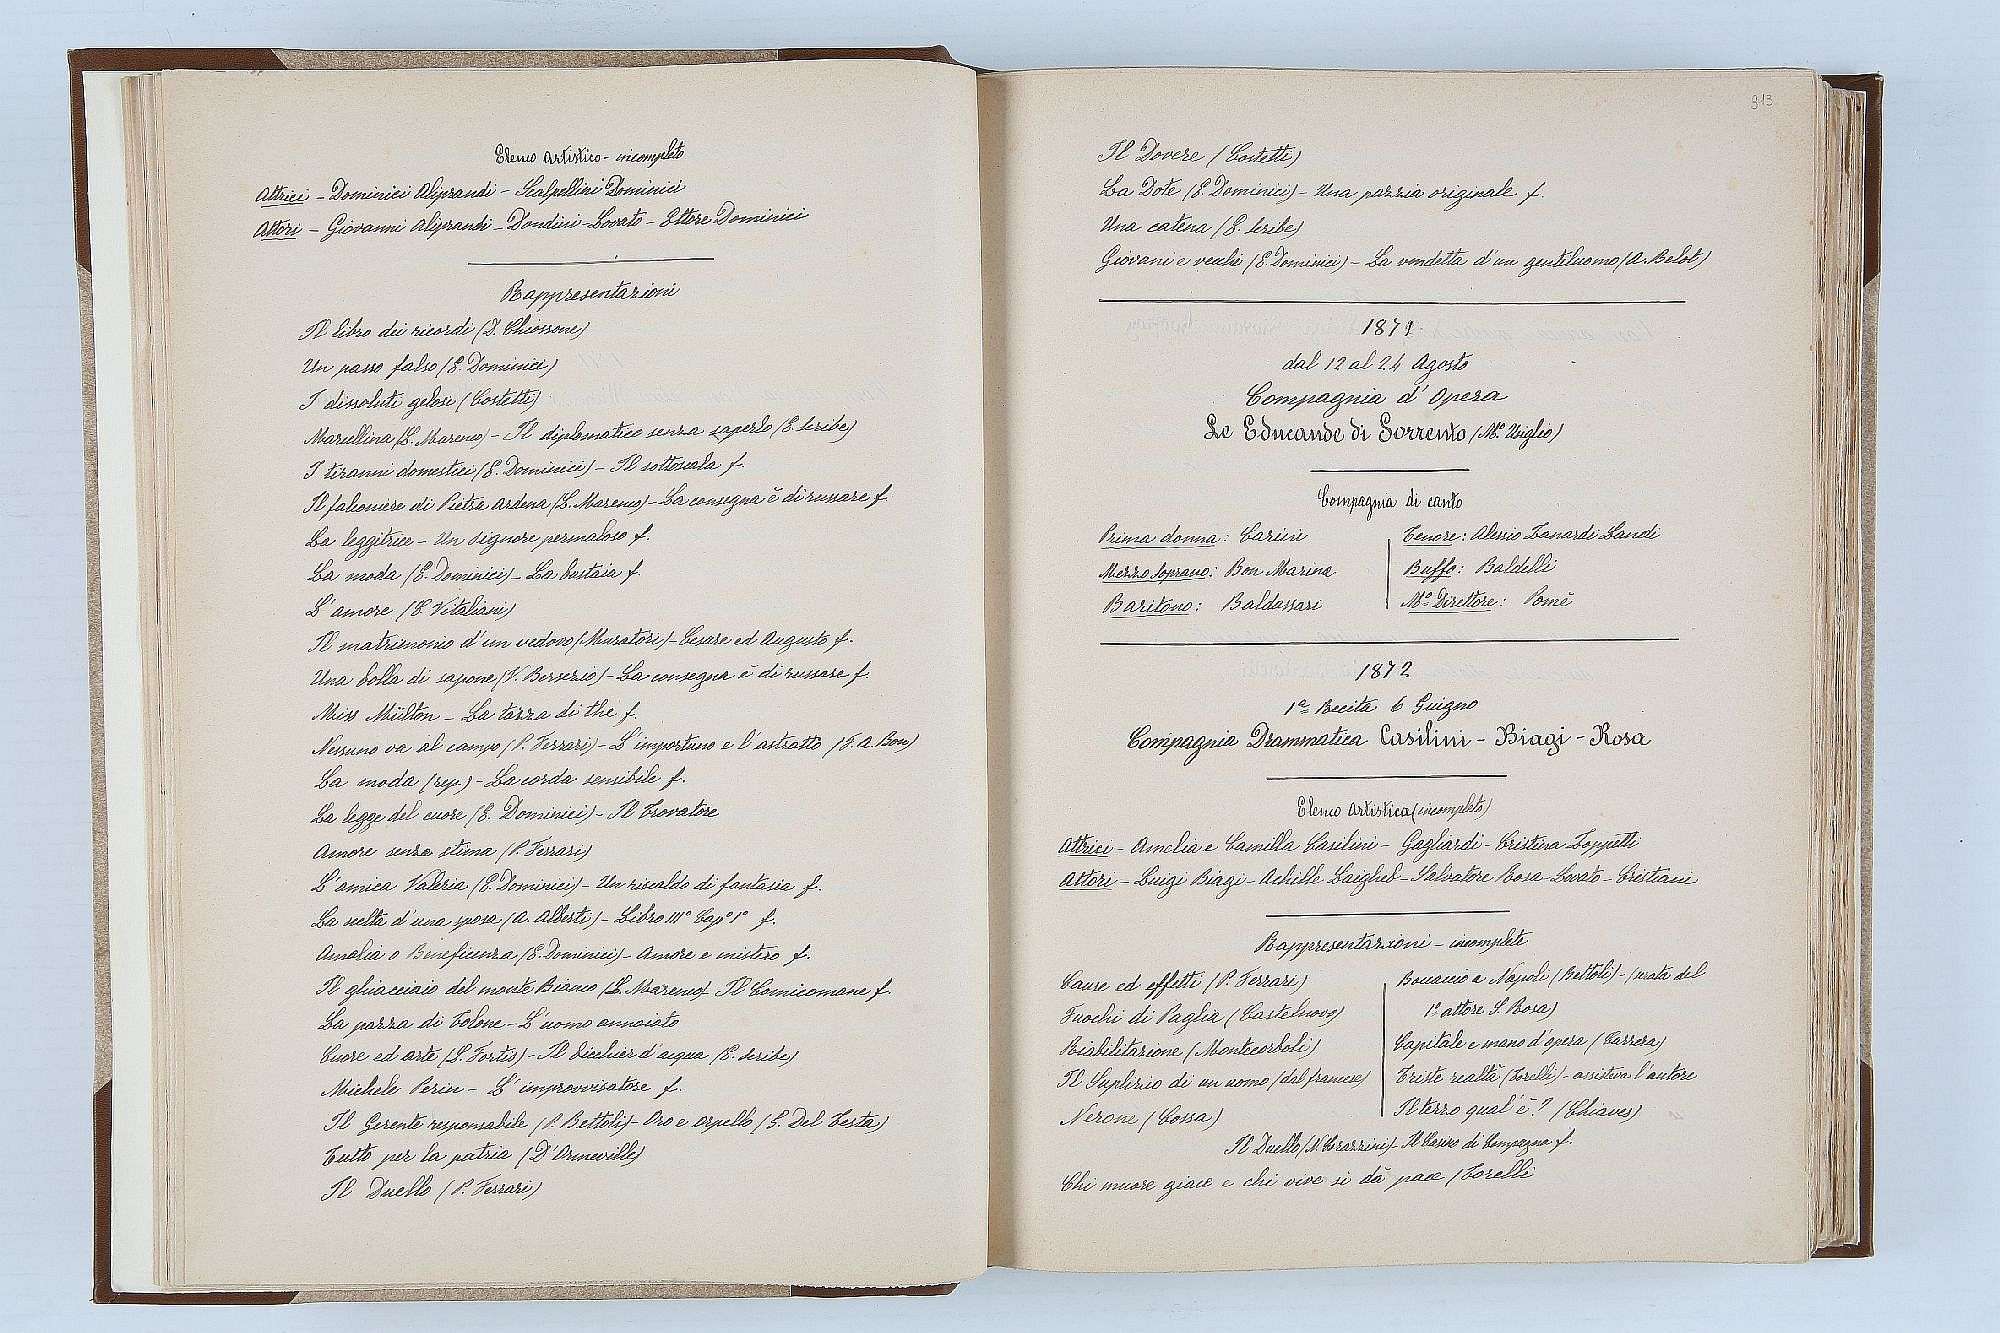 Elenco Artistico - incompleto
Attrici - Dominici Aliprandi - Scalpellini Dominici
Attori - Giovanni Aliprandi - Dondini - Lovato - Ettore Dominici
Rappresentazioni
Il libro dei ricordi (D. Chiossone)
Un passo falso (E. Dominici)
I dissoluti gelosi (Costetti)
Marcellina (L. Marenco) - Il diplomatico senza saperlo (E. Scribe)
I tiranni domestici (E. Dominici) - Il sottoscala f.
Il falconiere di Pietra Ardena (L. Marenco) - La consegna è di russare f.
La leggitrice - Un signore permaloso f.
La moda (E. Dominici) - La bustaia f.
L'amore (E. Vitaliani)
Il matrimonio d'un vedovo (Muratori) - Cesare ed Augusto f.
Una bolla di sapone (V. Bersezio) - La consegna è di russare f.
Miss Mülton - La tazza di the f.
Nessuno va al campo (P. Ferrari) - L'importuno e l'astratto (F. A. Bon)
La moda (rep.) - La corda sensibile f.
La legge del cuore (E. Dominici) - Il Trovatore
Amore senza stima (P. Ferrari)
L'amica Valeria (E. Dominici) - Un riscaldo di fantasia f.
La scelta d'una sposa (A. Alberti) - Libro IIIº Capº 1º f.
Amalia o Beneficenza (E. Dominici) - Amore e mistero f.
Il ghiacciaio del monte Bianco (L. Marenco) - Il Comicomane f.
La pazza di Tolone - L'uomo annoiato
Cuore ed arte (L. Fortis) - Il bicchier d'acqua (E. Scribe)
Michele Perin - L'improvvisatore f.
Il Gerente responsabile (P. Bettoli) - Oro e orpello (G. Del Testa)
Tutto per la patria (D'Ormeville)
Il Duello (P. Ferrari)
313
Il Dovere (Costetti)
La Dote (E. Dominici) - Una pazzia originale f.
Una catena (E. Scribe)
Giovani e vecchi (E. Dominici) - La vendetta d'un gentiluomo (A. Belot)
1871
dal 12 al 24 Agosto
Compagnia d'Opera
Le Educande di Sorrento (Mº Usiglio)
Compagnia di canto
Prima donna: Carini
Mezzo Soprano: Bon Marina
Baritono: Baldassari
Tenore: Alessio Zanardi Landi
Buffo: Baldelli
Mº Direttore: Pomè
1872
1ª Recita 6 Guigno
Compagnia Drammatica Casilini - Biagi - Rosa
Elenco Artistica (incompleto)
Attrici - Amelia e Camilla Casilini - Gagliardi - Cristina Zoppetti
Attori - Luigi Biagi - Achille Laighel - Salvatore Rosa - Lovato - Cristiani
Rappresentazioni - incomplete
Cause ed effetti (P. Ferrari)
Fuochi di Paglia (Castelnovo)
Riabilitazione (Montecorboli)
Il Suplizio di un uomo (dal francese)
Nerone (Cossa)
Boccaccio a Napoli (Bettoli) - (serata del
1º attore S. Rosa)
Capitale e mano d'opera (Carrera)
Triste realtà (Torelli) - assisteva l'autore
Il terzo qual'è? (Chiaves)
Il Duello (N. Grazzini) - Il Casino di Campagna f.
Chi muore giace e chi vive si dà pace (Torelli